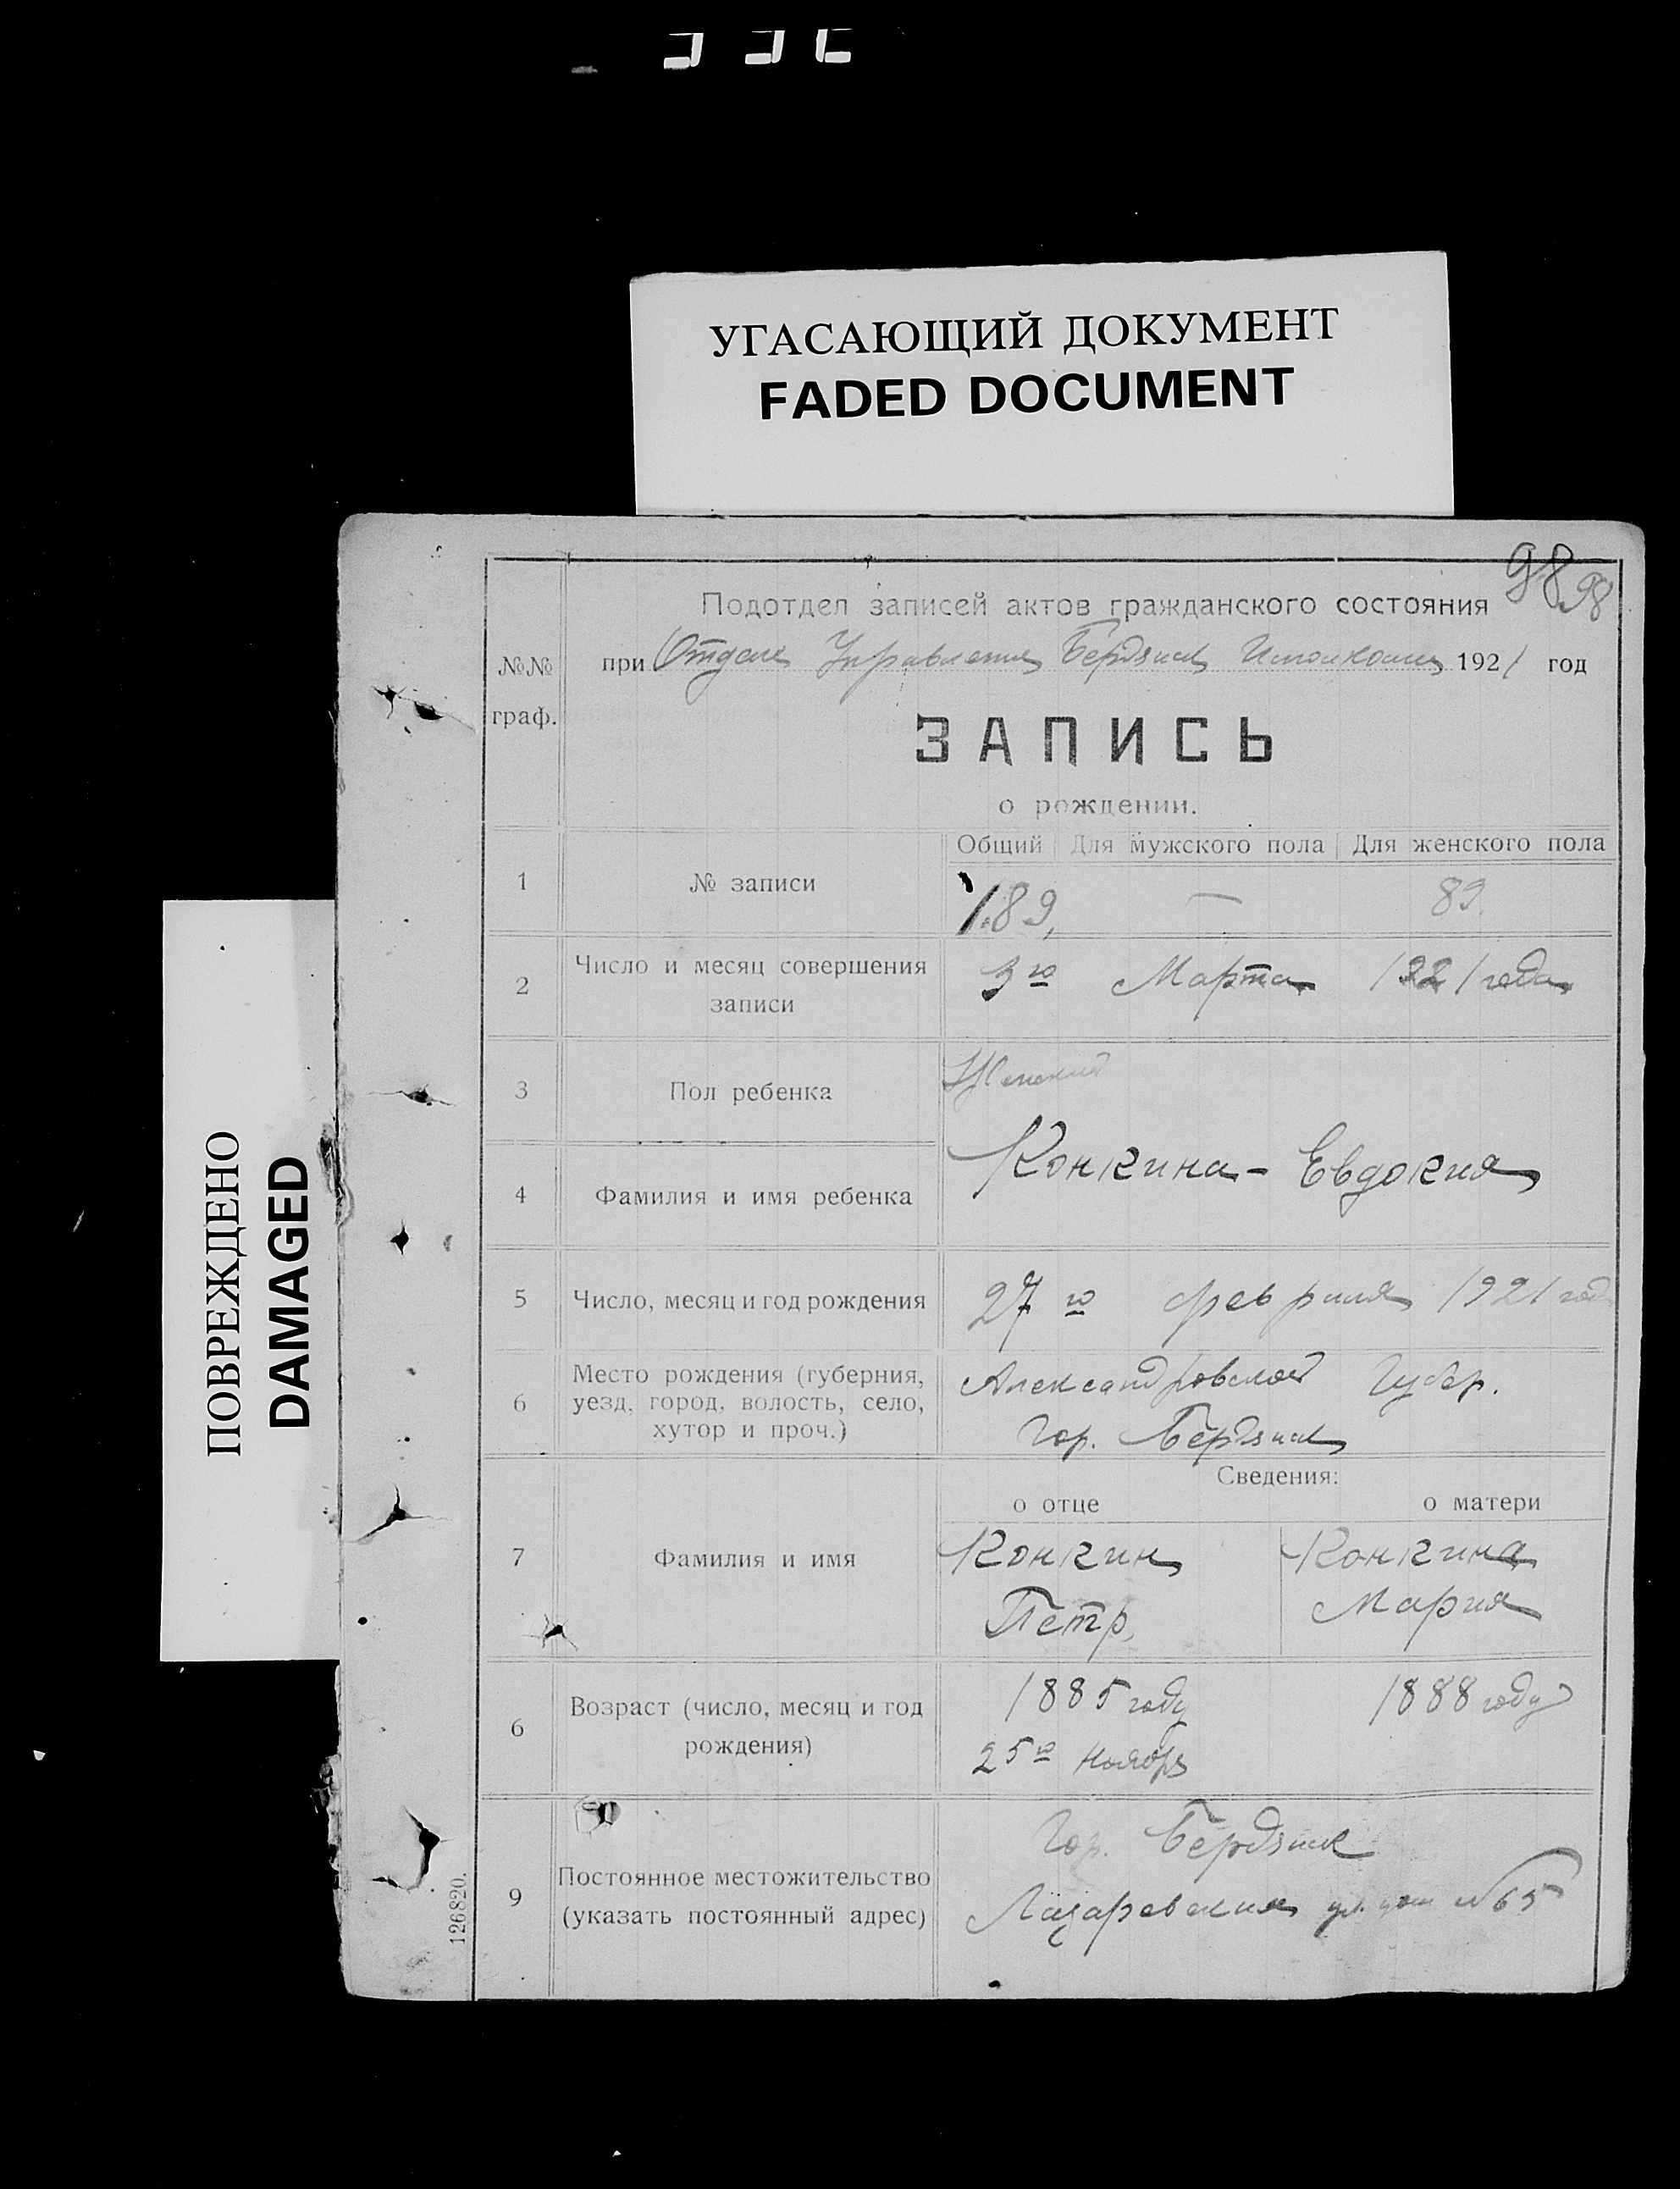 УГАСАЮЩИЙ ДОКУМЕНТ
FADED DOCUMENT
ПОВРЕЖДЕНО
DAMAGED
98 98
Подотдел записей актов гражданского состояния
№№ граф.
при Отделе Управления Бердянск Исполкома 1921 год
ЗАПИСЬ
о рождении.
Общий Для мужского пола Для женского пола
1 № записи 189, — 89.
2 Число и месяц совершения записи 3го Марта 1921 года
3 Пол ребенка Женский
4 Фамилия и имя ребенка Конкина - Евдокия
5 Число, месяц и год рождения 27 го февраля 1921 год
6 Место рождения (губерния, уезд, город, волость, село, хутор и проч.) Александровской Губер.
Гор. Бердянск
Сведения:
о отце о матери
7 Фамилия и имя Конкин Конкина
Петр, Мария
6 Возраст (число, месяц и год рождения) 1885 году 1888 году
25го Ноября
9 Постоянное местожительство (указать постоянный адрес) Гор. Бердянск
Лазаревская ул. дом №65
126820.